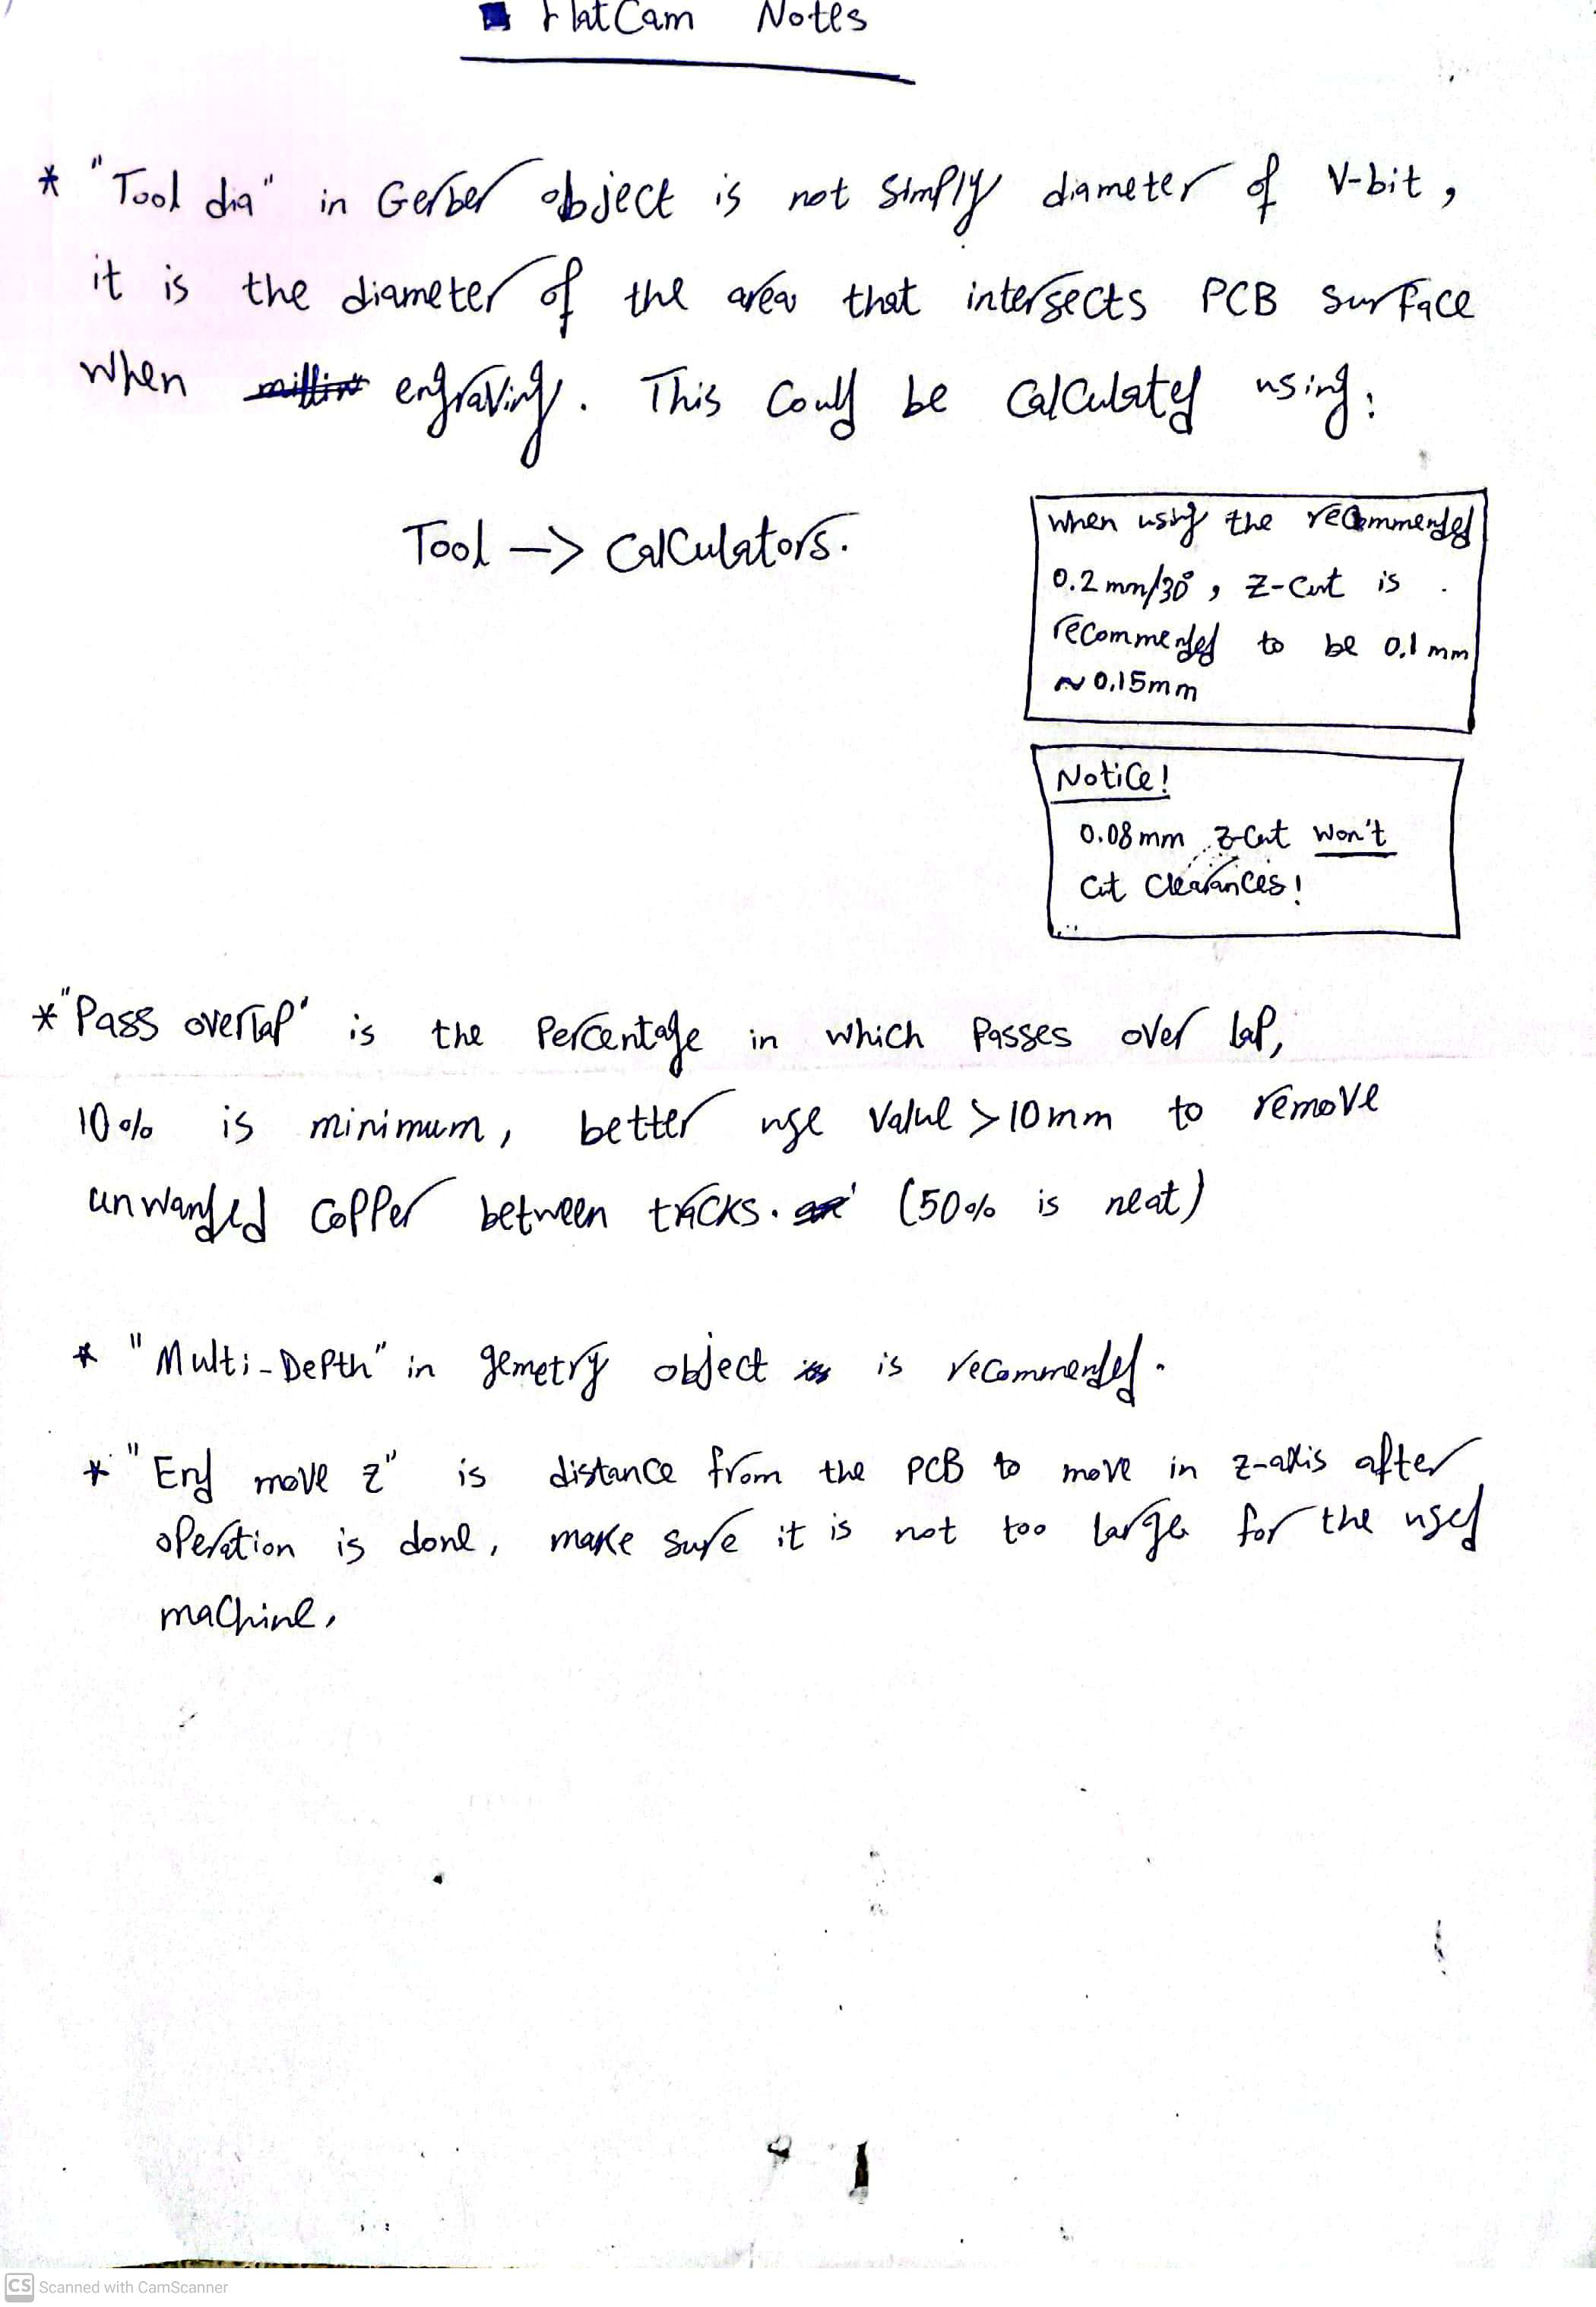 FlatCam Notes
* "Tool dia" in Gerber object is not simply diameter of V-bit,
it is the diameter of the area that intersects PCB surface
when engraving. This could be calculated using:
Tool -> Calculators.
when using the recommended
0.2 mm/30°, Z-Cut is
recommended to be 0.1 mm
~ 0.15mm
Notice!
0.08mm Z-Cut won't
cut clearances!
* "Pass overlap" is the percentage in which passes over lap,
10% is minimum, better use value > 10mm to remove
unwanded copper between tracks. (50% is neat)
* "Multi-Depth" in gemetry object is recommended.
* "End move z" is distance from the PCB to move in z-axis after
operation is done, make sure it is not too large for the used
machine.
CS Scanned with CamScanner